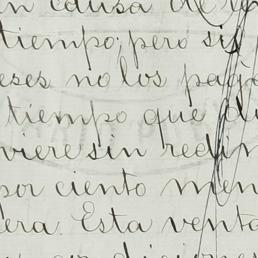 en causa de
tiempo; pero si
eses no los pag
tiempo que di
viere sin redim
por ciento men
era. Esta venta